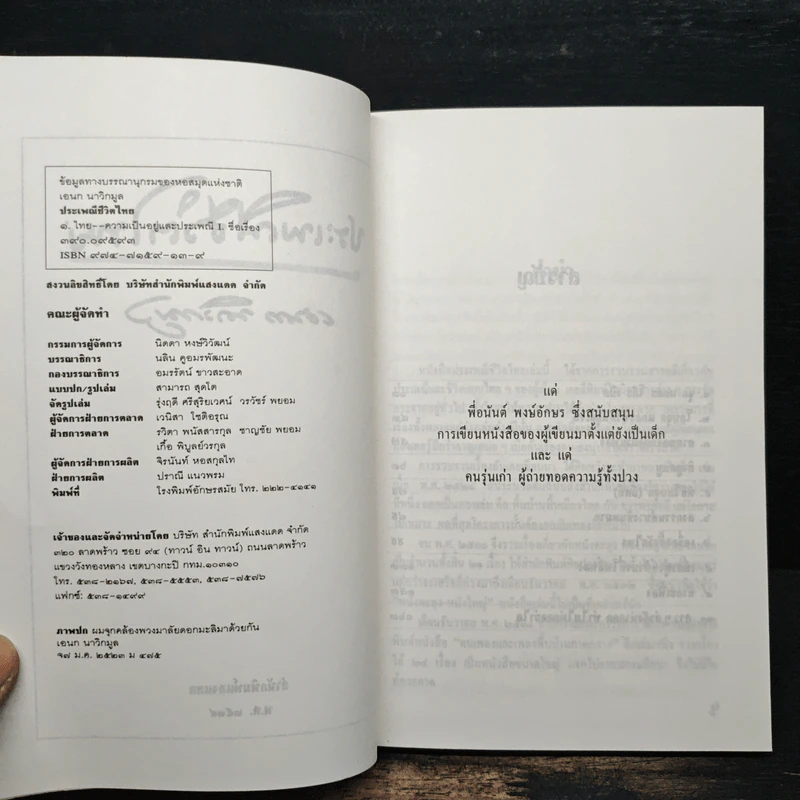 ข้อมูลทางบรรณานุกรมของหอสมุดแห่งชาติ
เอนก นาวิกมูล
ประเพณีชีวิตไทย
๑. ไทย--ความเป็นอยู่และประเพณี I. ชื่อเรื่อง
๓๙๐.๐๙๕๙๓
ISBN ๙๗๔-๗๑๕๙-๑๓-๙
สงวนลิขสิทธิ์โดย บริษัทสำนักพิมพ์แสงแดด จำกัด
คณะผู้จัดทำ
กรรมการผู้จัดการ นิดดา หงษ์วิวัฒน์
บรรณาธิการ นลิน คูอมรพัฒนะ
กองบรรณาธิการ อมรรัตน์ ขาวสะอาด
แบบปก/รูปเล่ม สามารถ สุดโต
จัดรูปเล่ม รุ่งฤดี ศรีสุริยเวศน์ วรวัชร์ พยอม
ผู้จัดการฝ่ายการตลาด เวนิสา โชติอรุณ
ฝ่ายการตลาด รวิดา พนัสสารกุล ชาญชัย พยอม
เกื้อ พิบูลย์วรกุล
ผู้จัดการฝ่ายการผลิต จิรนันท์ หอสกุลไท
ฝ่ายการผลิต ปราณี แนวพรม
พิมพ์ที่ โรงพิมพ์อักษรสมัย โทร. ๒๒๒-๔๑๔๑
เจ้าของและจัดจำหน่ายโดย บริษัท สำนักพิมพ์แสงแดด จำกัด
๓๒๐ ลาดพร้าว ซอย ๙๔ (ทาวน์ อิน ทาวน์) ถนนลาดพร้าว
แขวงวังทองหลาง เขตบางกะปิ กทม.๑๐๓๑๐
โทร. ๕๓๘-๒๑๖๗, ๕๓๘-๕๕๕๓, ๕๓๘-๗๕๗๖
แฟกซ์: ๕๓๘-๑๔๙๙
ภาพปก ผมจุกคล้องพวงมาลัยดอกมะลิมาด้วยกัน
เอนก นาวิกมูล
๑๗ ม.ค. ๒๕๒๓ ม ๔๗๕
แด่
พี่อนันต์ พงษ์อักษร ซึ่งสนับสนุน
การเขียนหนังสือของผู้เขียนมาตั้งแต่ยังเป็นเด็ก
และ แด่
คนรุ่นเก่า ผู้ถ่ายทอดความรู้ทั้งปวง